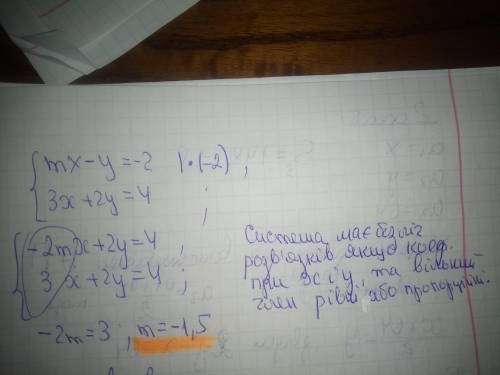 mx-y=-2 |·(-2) ;
3x+2y=4 ;
-2mx+2y=4 ;
3x+2y=4 ;
-2m=3 ; m=-1,5
Система має безліч
розв'язків якщо коеф.
при x і y, та вільний
член рівні або пропорційні.